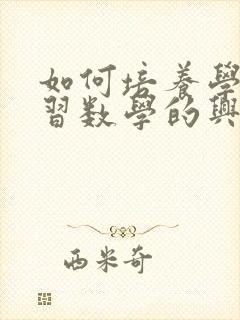 如何培養學
習數學的興
西米奇